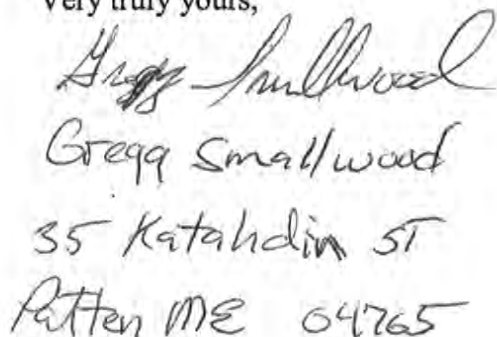 Very truly yours,
Gregg Smallwood
Gregg Smallwood
35 Katahdin ST
Patten ME 04765